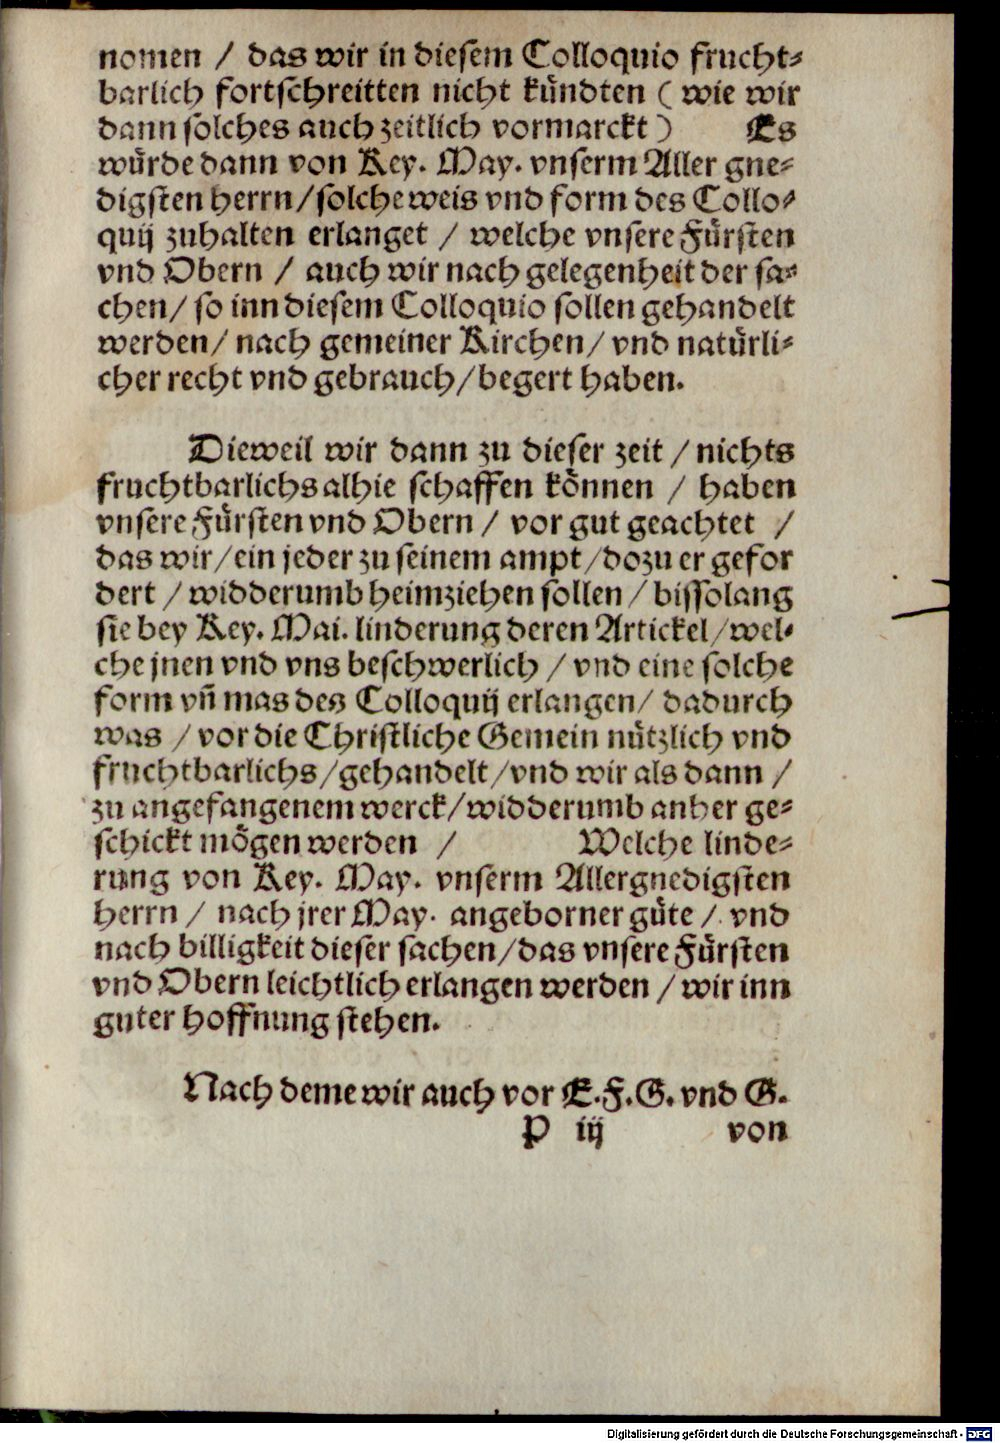 nomen / das wir in diesem Colloquio frucht⸗
barlich fortschreitten nicht kündten ( wie wir
dann solches auch zeitlich vormarckt ) Es
würde dann von Key. May. vnserm Aller gne⸗
digsten herrn / solche weis vnd form des Collo⸗
quij zuhalten erlanget / welche vnsere Fürsten
vnd Obern / auch wir nach gelegenheit der sa⸗
chen / so inn diesem Colloquio sollen gehandelt
werden / nach gemeiner Kirchen / vnd natürli⸗
cher recht vnd gebrauch / begert haben.
Dieweil wir dann zu dieser zeit / nichts
fruchtbarlichs alhie schaffen können / haben
vnsere Fürsten vnd Obern / vor gut geachtet /
das wir / ein jeder zu seinem ampt / dozu er gefor
dert / widderumb heimziehen sollen / bissolang
sie bey Key. Mai. linderung deren Artickel / wel⸗
che jnen vnd vns beschwerlich / vnd eine solche
form vñ mas des Colloquij erlangen / dadurch
was / vor die Christliche Gemein nützlich vnd
fruchtbarlichs / gehandelt / vnd wir als dann /
zu angefangenem werck / widderumb anher ge⸗
schickt mögen werden / Welche linde⸗
rung von Key. May. vnserm Allergnedigsten
herrn / nach jrer May. angeborner güte / vnd
nach billigkeit dieser sachen / das vnsere Fürsten
vnd Obern leichtlich erlangen werden / wir inn
guter hoffnung stehen.
Nach deme wir auch vor E. F. G. vnd G.
P iij von
Digitalisierung gefördert durch die Deutsche Forschungsgemeinschaft - DFG